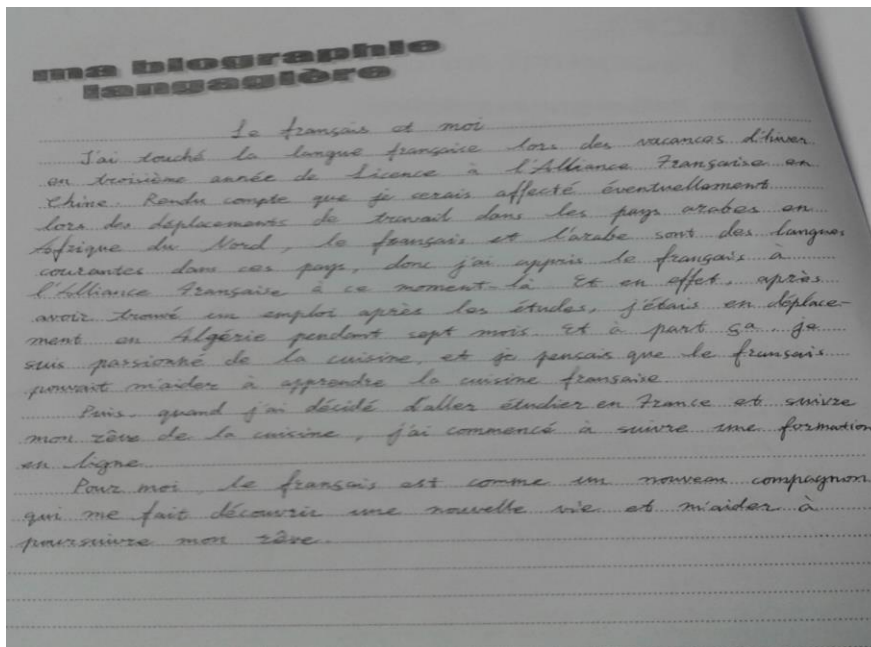 ma biographie
langagière
Le français et moi
J'ai touché la langue française lors des vacances d'hiver
en troisième année de Licence à l'Alliance Française en
Chine. Rendu compte que je cerais affecté éventuellement
lors des déplacements de travail dans les pays arabes en
Aofrique du Nord, le français et l'arabe sont des langues
courantes dans ces pays, donc j'ai appris le français à
l'Alliance Française à ce moment-là. Et en effet, après
avoir trouvé un emploi après les études, j'étais en déplace-
ment en Algérie pendant sept mois. Et à part ça, je
suis passionné de la cuisine, et je pensais que le français
pouvait m'aider à apprendre la cuisine française.
Puis, quand j'ai décidé d'aller étudier en France et suivre
mon rêve de la cuisine, j'ai commencé à suivre une formation
en ligne.
Pour moi, le français est comme un nouveau compagnon
qui me fait découvrir une nouvelle vie et m'aider à
poursuivre mon rêve.